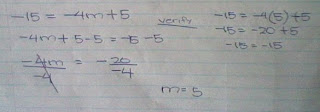 -15 = -4m+5
-4m+5-5 = -15-5
-4m/-4 = -20/-4
m=5
verify
-15 = -4(5)+5
-15 = -20+5
-15 = -15